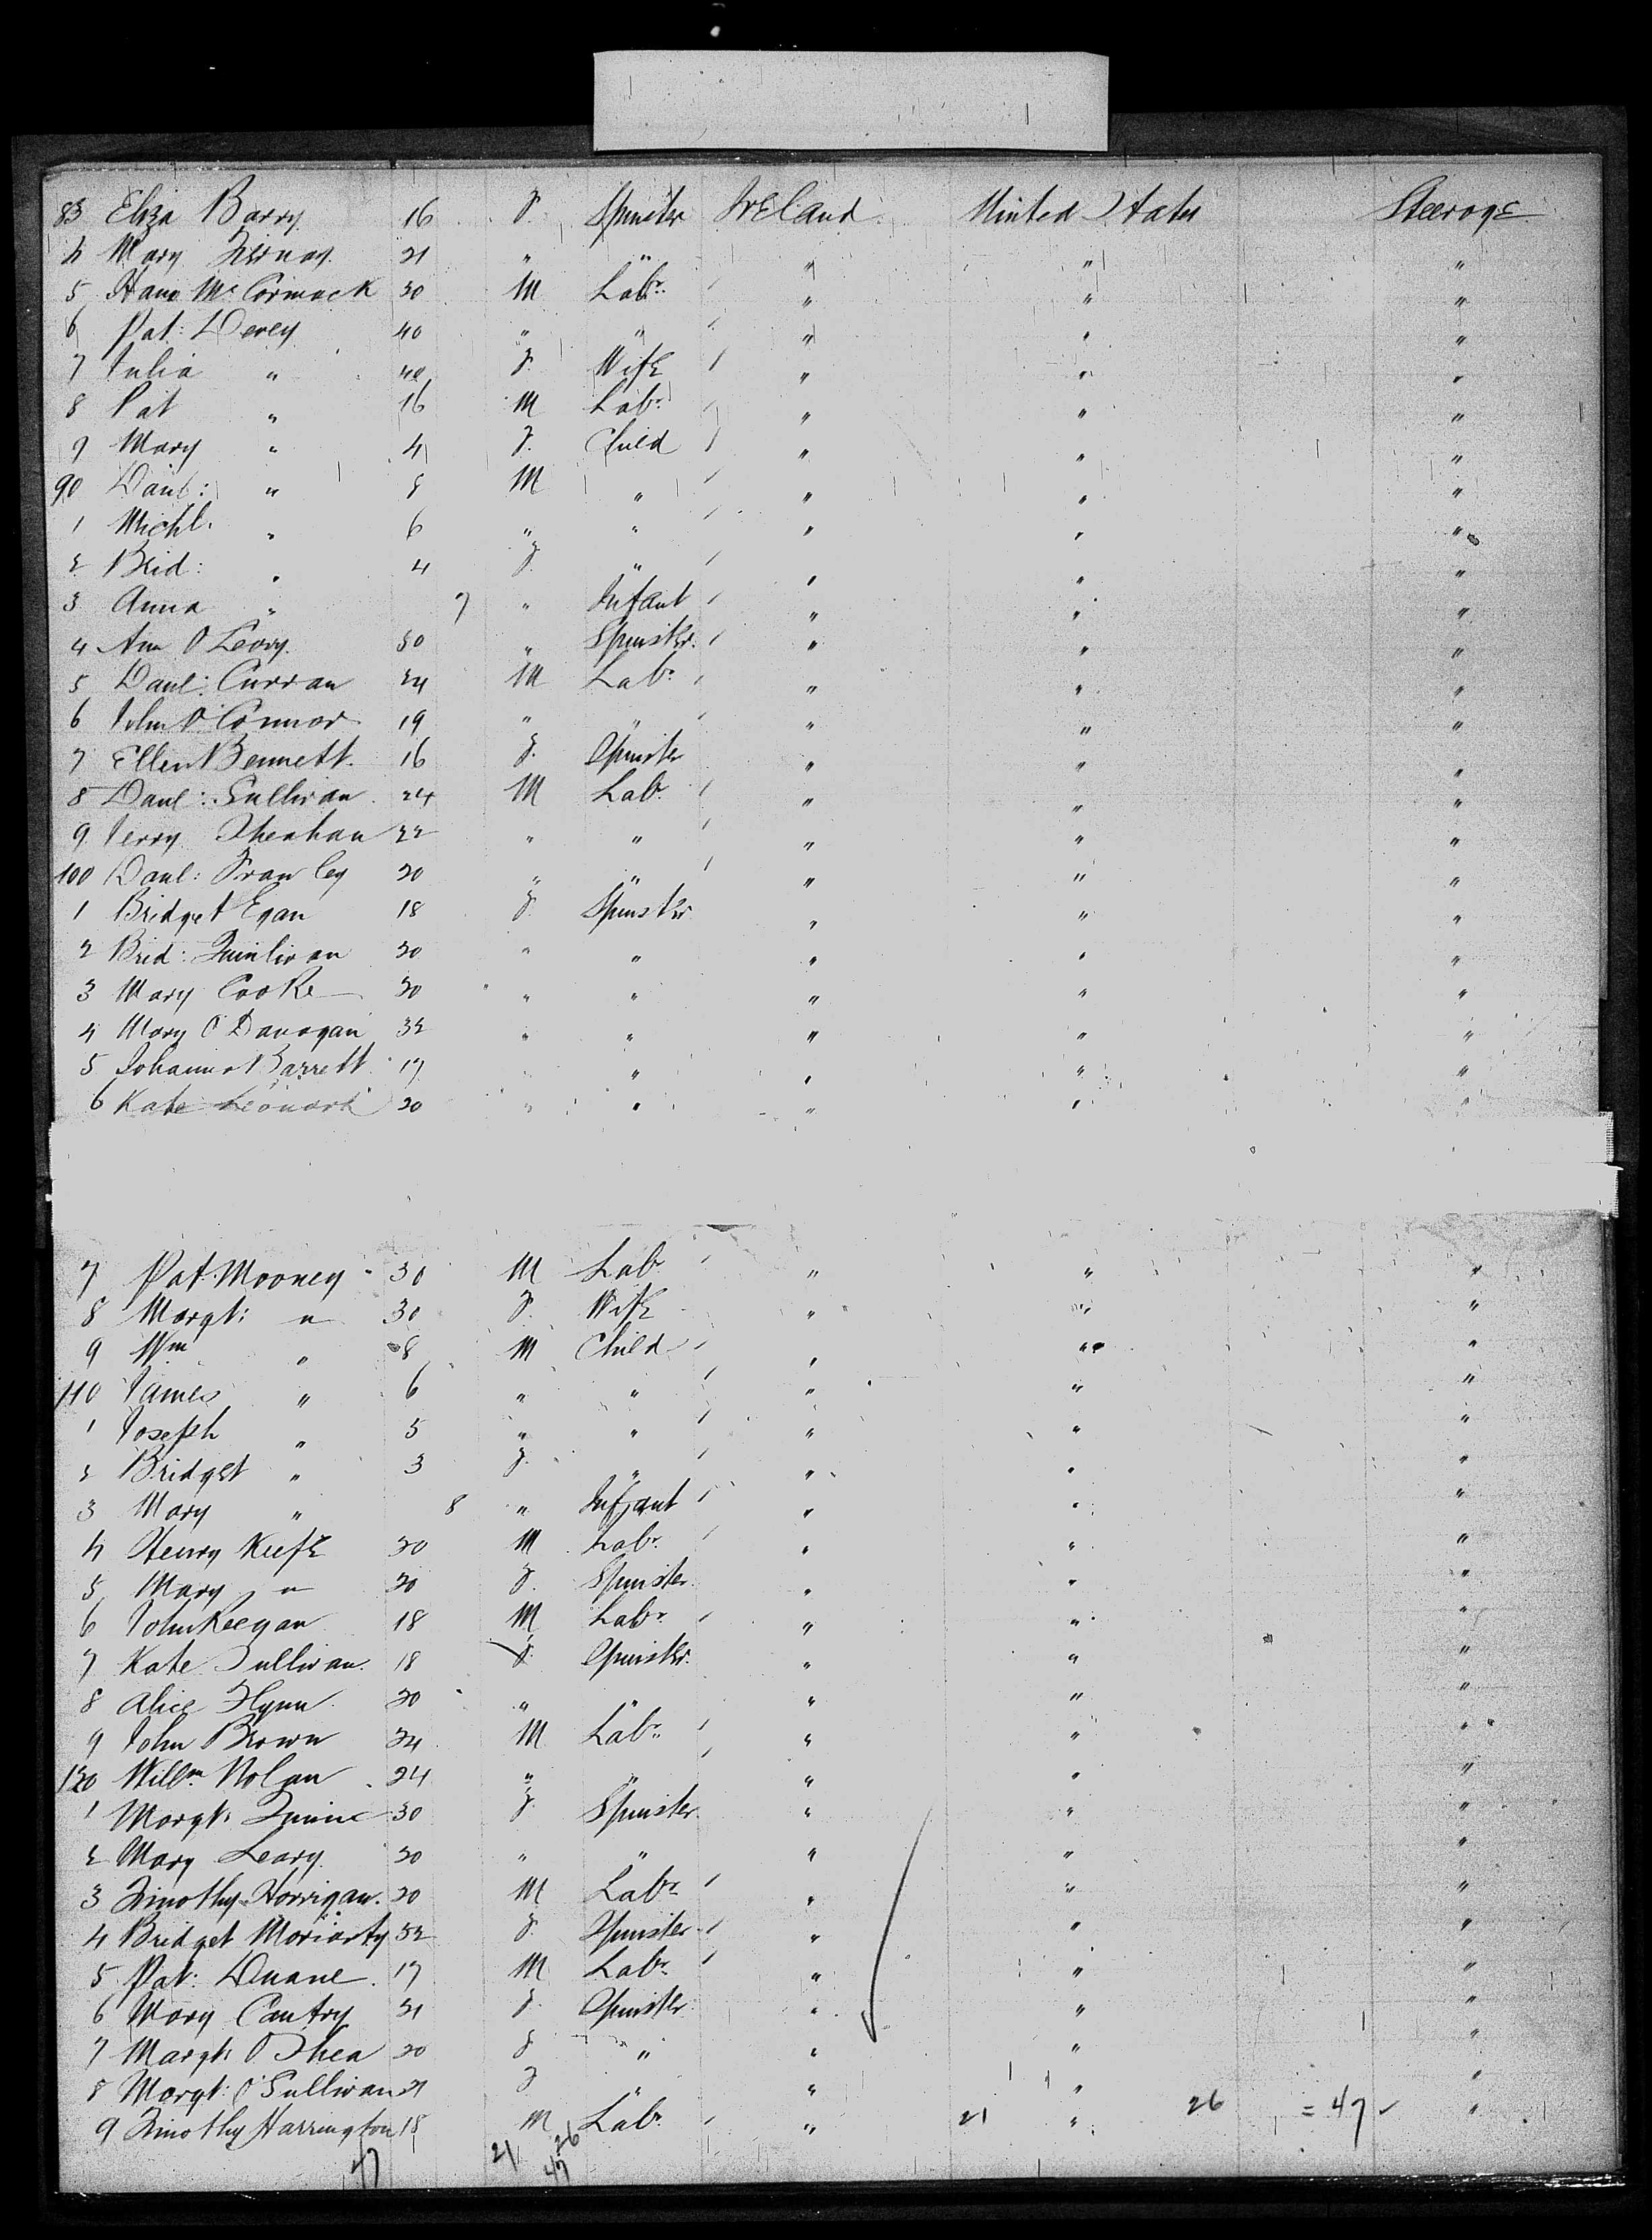 83 Eliza Barry 16 F. Spinster Ireland United States Steerage
4 Mary 21 " " " " "
5 McCormack 30 M Labr. " " "
6 Pat: Devey 40 " " " " "
7 Julia " 40 F. Wife " " "
8 Pat " 16 M Labr. " " "
9 Mary " 4 F. Child " " "
90 Danl: " 8 M " " " "
1 Michl. " 6 " " " " "
2 Brid: " 4 F. " " " "
3 Anna " 7 " Infant " " "
4 Ann O'Leary 50 " Spinster. " " "
5 Danl: Curran 24 M Labr. " " "
6 John O'Connor 19 " " " " "
7 Ellen Bennett. 16 F. Spinster " " "
8 Danl: Sullivan 24 M Lab. " " "
9 Jerry Sheahan 22 " " " " "
100 Danl: Frawley 20 " " " " "
1 Bridget Egan 18 F. Spinster " " "
2 Brid: Quinlivan 20 " " " " "
3 Mary Cooke 20 " " " " "
4 Mary O'Donogan 32 " " " " "
5 Johanna Barrett 17 " " " " "
6 Kate Leonard 20 " " " " "
7 Pat. Mooney 30 M Lab " " "
8 Margt: " 30 F. Wife " " "
9 Wm " 8 M Child " " "
110 James " 6 " " " " "
1 Joseph " 5 " " " " "
2 Bridget " 3 F. " " " "
3 Mary " 8 " Infant " " "
4 Henry Keefe 30 M Labr. " " "
5 Mary " 20 F. Spinster. " " "
6 John Keegan 18 M Labr. " " "
7 Kate Sullivan. 18 F. Spinster. " " "
8 Alice Flynn 20 " " " " "
9 John Brown 24 M Labr. " " "
120 Willm. Nolan 24 " " " " "
1 Margt. Quine 30 F. Spinster. " " "
2 Mary Leary 20 " " " " "
3 Timothy Horrigan. 20 M Labr. " " "
4 Bridget Moriarty 52 F. Spinster " " "
5 Pat: Duane. 17 M Labr. " " "
6 Mary Cantry 21 F. Spinster " " "
7 Margt. O'Shea 20 F " " " "
8 Margt: O'Sullivan 21 F " " " "
9 Timothy Harrington 18 M Labr. " 21 " 26 = 47 "
47 21 26
47